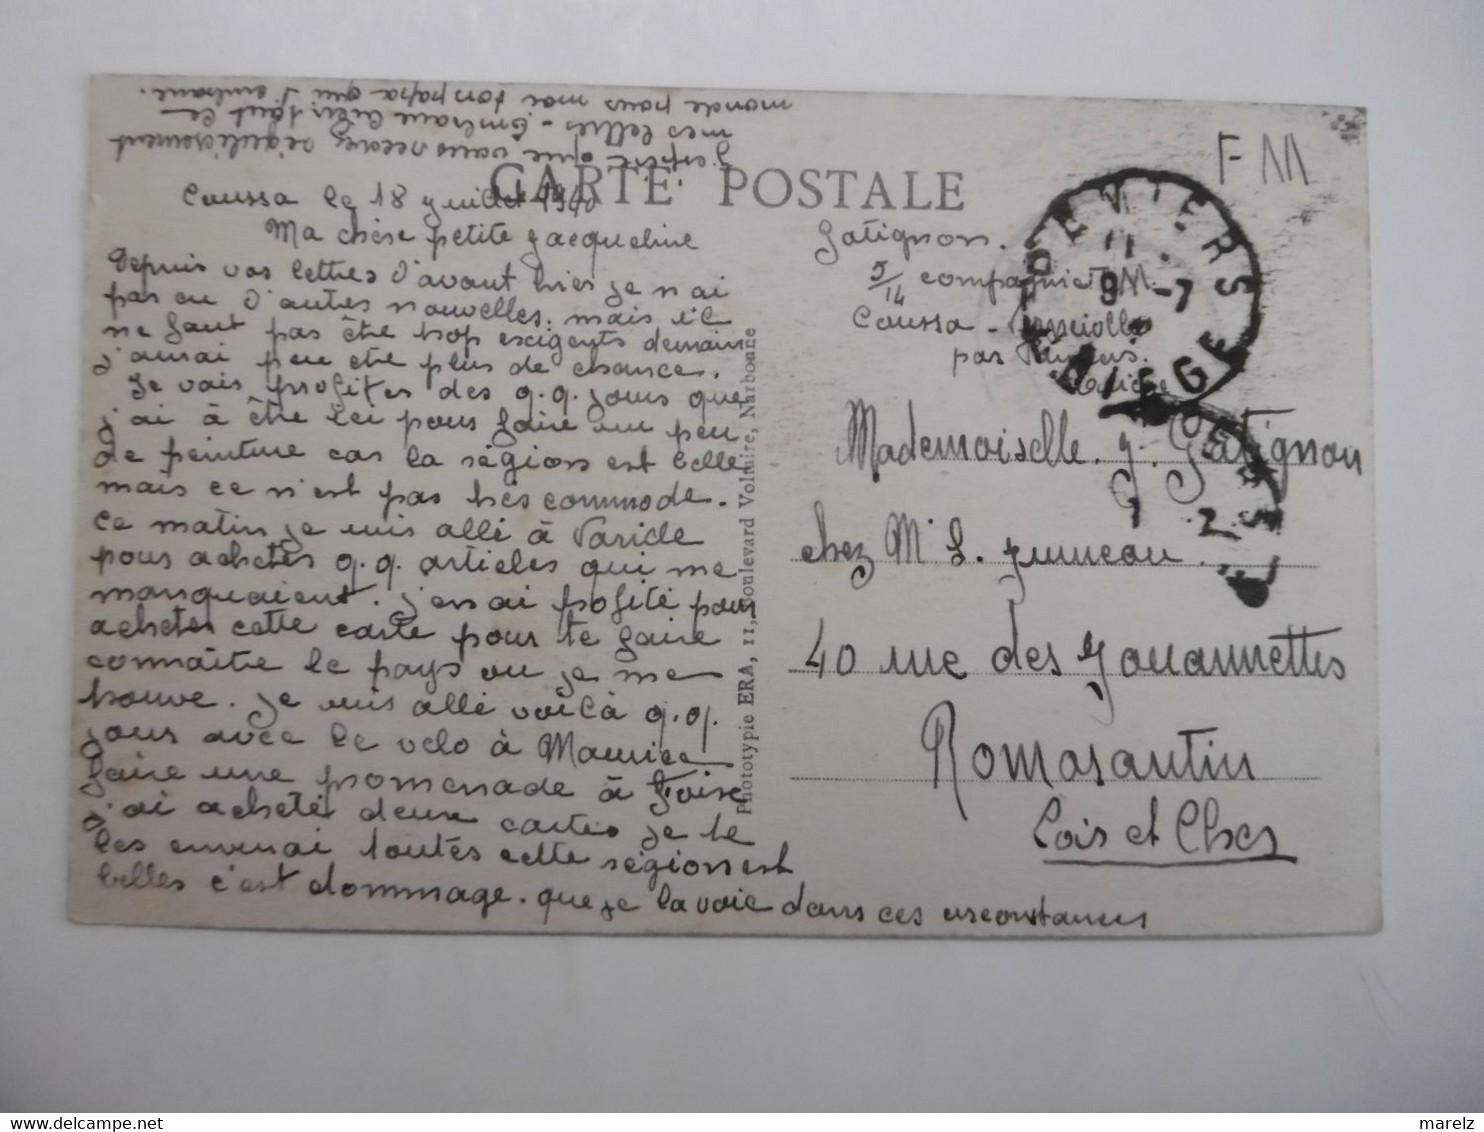 F M
CARTE POSTALE
Coussa le 18 juillet 1940
Ma chère petite Jacqueline
Depuis vos lettres d'avant hier je n'ai
pas eu d'autres nouvelles, mais il
ne faut pas être trop exigents demain
j'aurai peu être plus de chance.
Je vais profiter des q.q. jours que
j'ai à être ici pour faire un peu
de peinture car la région est belle
mais ce n'est pas très commode.
Ce matin je suis allé à Varilde
pour acheter q.q. articles qui me
manquaient. j'en ai profité pour
acheter cette carte pour te faire
connaître le pays ou je me
trouve. je suis allé voilà q.q.
jours avec le velo à Maurice
faire une promenade à Foix
j'ai acheté deux cartes je te
les enverrai toutes cette région est
belles c'est dommage que je la voie dans ces circonstances
J'espère que vous recevez régulièrement
mes lettres - Embrasse bien tout le
monde pour moi ton papa qui t'embrasse.
Phototypie ERA, 11, Boulevard Voltaire, Narbonne
Gatignon.
5/14 compagnie M.
Coussa -
par
Mademoiselle J. Gatignon
chez M. L. Juneau
40 rue des Jouannettes
Romorantin
Loir et Cher
VERNIOLLE
marelz